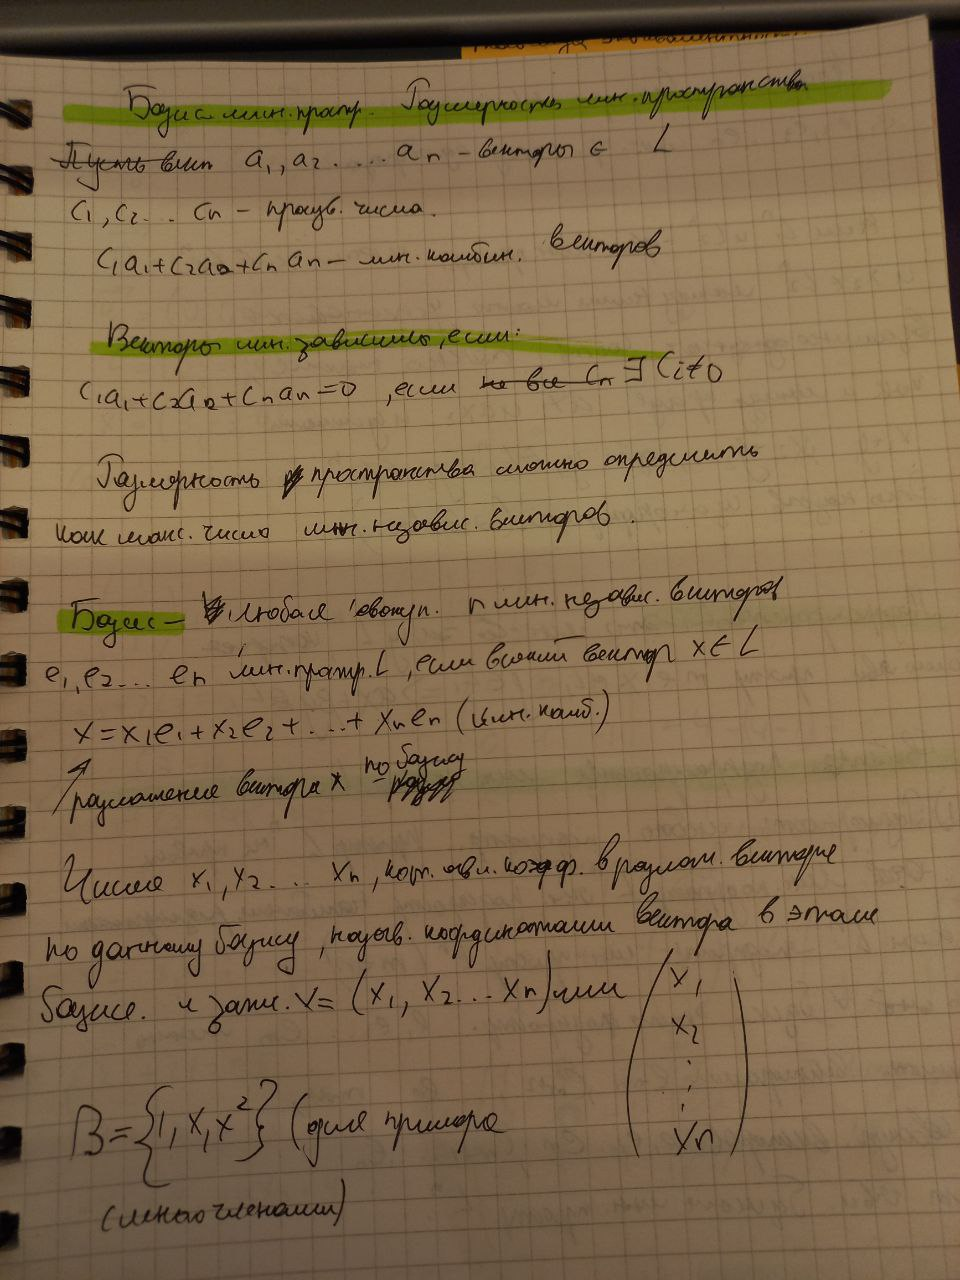 Базис лин. простр. Размерность лин. пространства
Пусть вект a₁, a₂ .... aₙ – векторы ∈ L
c₁, c₂... cₙ – произв. числа.
c₁a₁+c₂a₂+cₙaₙ – лин. комбин. векторов
Векторы лин. зависимы, если:
c₁a₁+c₂a₂+cₙaₙ=0, если не все cₙ ∃ cᵢ≠0
Размерность пространства можно определить
как макс. число лин. независ. векторов.
Базис – любая совокуп. n лин. независ. векторов
e₁, e₂... eₙ лин. простр. L, если всякий вектор x ∈ L
x=x₁e₁+x₂e₂+...+xₙeₙ (лин. комб.)
разложение вектора x по базису
Числа x₁, x₂... xₙ, кот. явл. коэфф. в разлож. вектора
по данному базису, назыв. координатами вектора в этом
базисе. и запис. x= (x₁, x₂... xₙ) или (x₁
x₂
⋮
xₙ)
B={1, x, x²} (для примера
(многочленами)